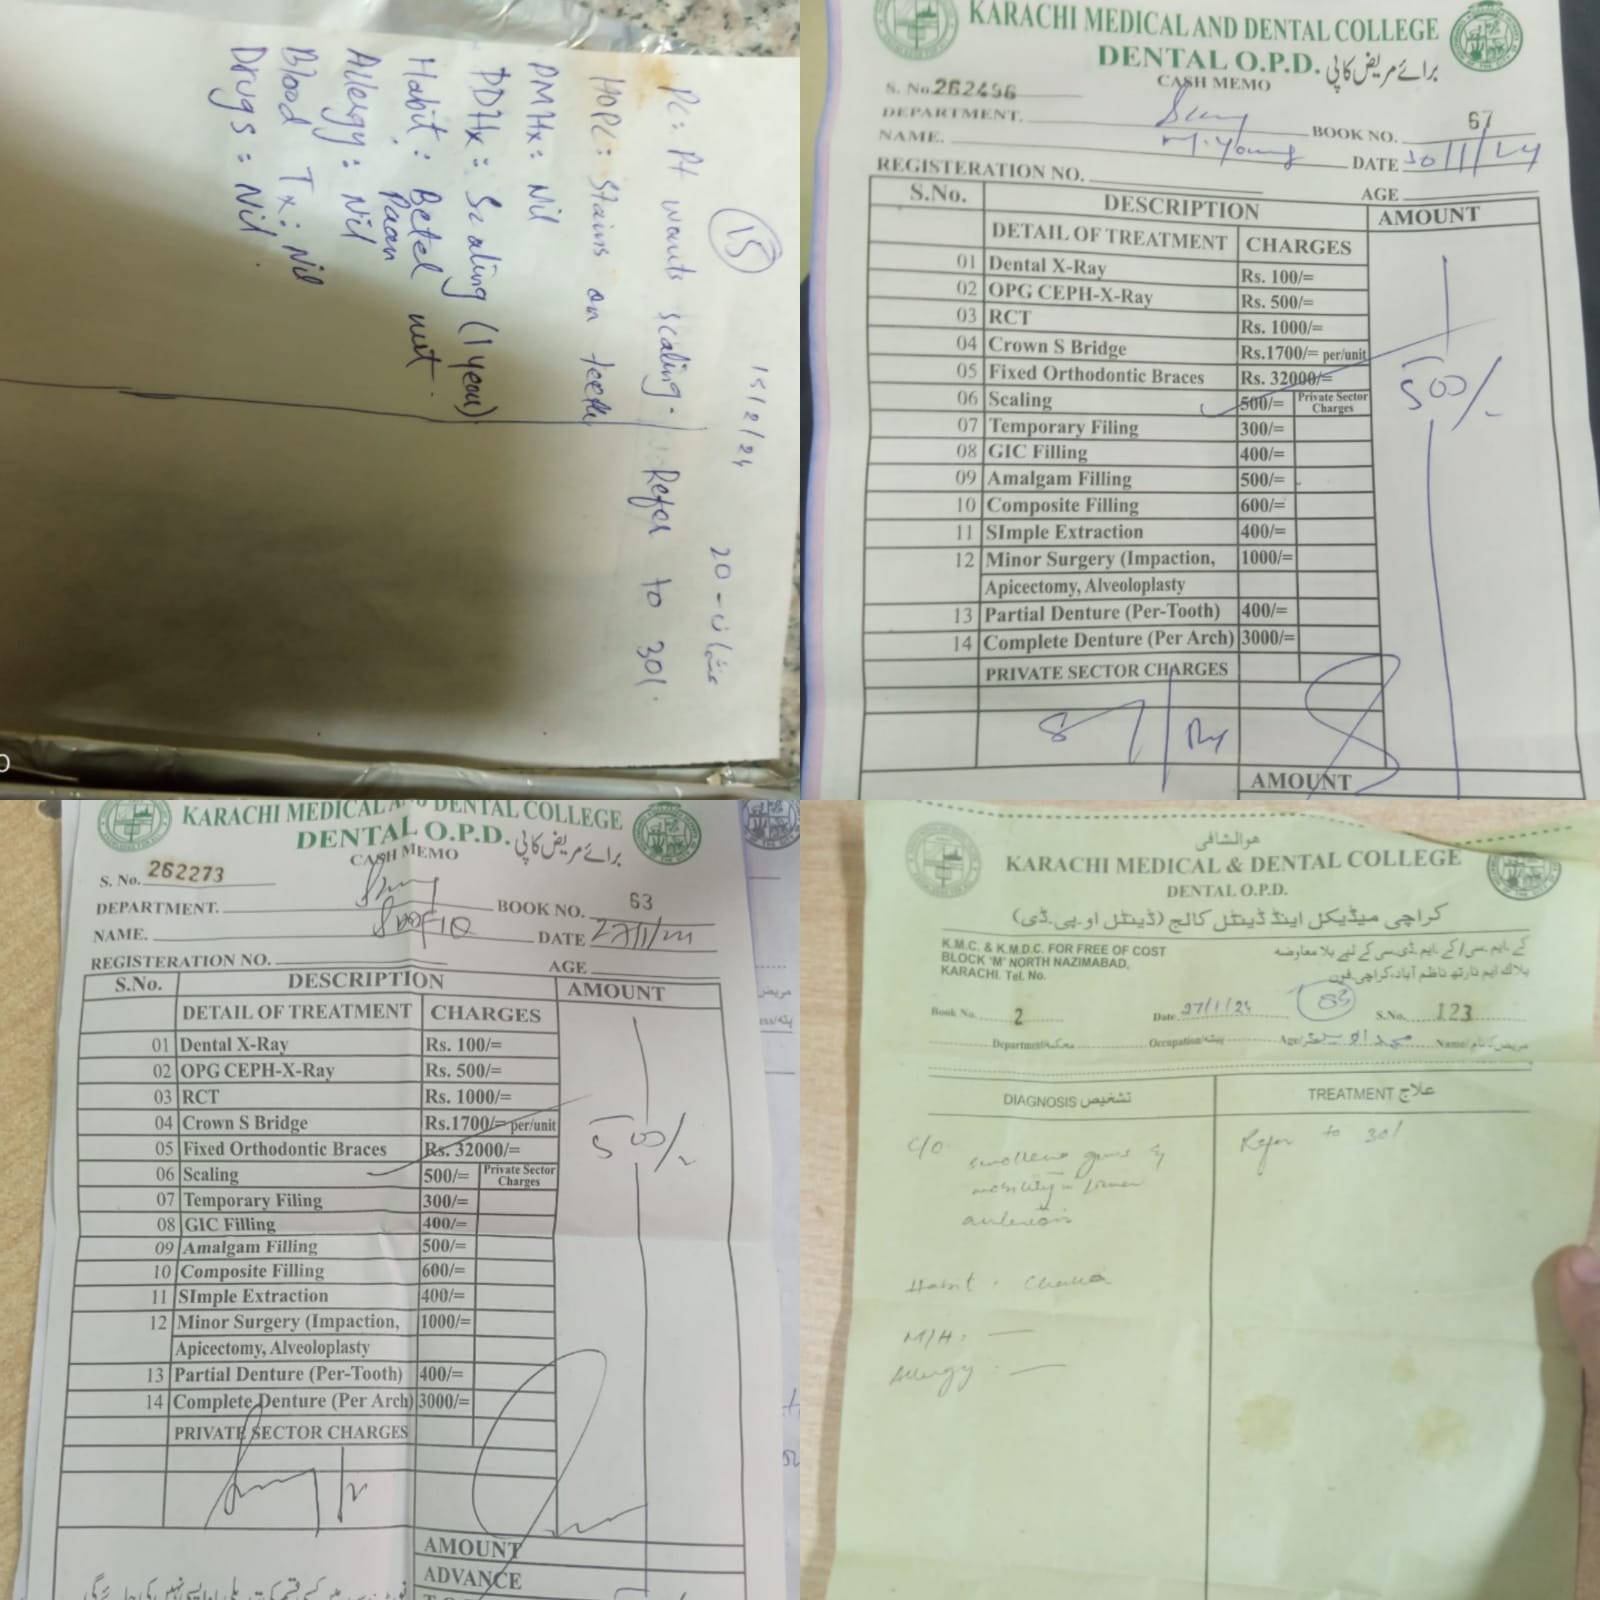 15/2/24
20-عثمان
15
PC: Pt wants scaling. Refer to 301.
HOPC: Stains on teeth
PMHx: Nil
PDHx: Scaling (1 year)
Habit: Betel nut.
Paan
Allergy: Nil
Blood Tx: Nil
Drugs: Nil.
KARACHI MEDICAL AND DENTAL COLLEGE
DENTAL O.P.D. برائے مریض کاپی
CASH MEMO
S. No. 262456
DEPARTMENT.
BOOK NO. 67
NAME. M. Young DATE 30/1/24
REGISTERATION NO.
AGE
S.No. DESCRIPTION AMOUNT
DETAIL OF TREATMENT CHARGES
01 Dental X-Ray Rs. 100/=
02 OPG CEPH-X-Ray Rs. 500/=
03 RCT Rs. 1000/=
04 Crown S Bridge Rs.1700/= per/unit
05 Fixed Orthodontic Braces Rs. 32000/=
06 Scaling 500/= Private Sector Charges 500/-
07 Temporary Filing 300/=
08 GIC Filling 400/=
09 Amalgam Filling 500/=
10 Composite Filling 600/=
11 SImple Extraction 400/=
12 Minor Surgery (Impaction, 1000/=
Apicectomy, Alveoloplasty
13 Partial Denture (Per-Tooth) 400/=
14 Complete Denture (Per Arch) 3000/=
PRIVATE SECTOR CHARGES
AMOUNT
KARACHI MEDICAL AND DENTAL COLLEGE
DENTAL O.P.D. برائے مریض کاپی
CASH MEMO
S. No. 262273
DEPARTMENT.
BOOK NO. 63
NAME. DATE
REGISTERATION NO.
AGE
S.No. DESCRIPTION AMOUNT
DETAIL OF TREATMENT CHARGES
01 Dental X-Ray Rs. 100/=
02 OPG CEPH-X-Ray Rs. 500/=
03 RCT Rs. 1000/=
04 Crown S Bridge Rs.1700/= per/unit
05 Fixed Orthodontic Braces Rs. 32000/=
06 Scaling 500/= Private Sector Charges 500/-
07 Temporary Filing 300/=
08 GIC Filling 400/=
09 Amalgam Filling 500/=
10 Composite Filling 600/=
11 SImple Extraction 400/=
12 Minor Surgery (Impaction, 1000/=
Apicectomy, Alveoloplasty
13 Partial Denture (Per-Tooth) 400/=
14 Complete Denture (Per Arch) 3000/=
PRIVATE SECTOR CHARGES
AMOUNT
ADVANCE
هوالشافی
KARACHI MEDICAL & DENTAL COLLEGE
DENTAL O.P.D.
کراچی میڈیکل اینڈ ڈینٹل کالج (ڈینٹل او.پی.ڈی)
K.M.C. & K.M.D.C. FOR FREE OF COST
BLOCK 'M' NORTH NAZIMABAD,
KARACHI. Tel. No.
کے.ایم.سی/کے.ایم.ڈی.سی کے لیے بلا معاوضہ
بلاک ایم نارتھ ناظم آباد، کراچی فون
Book No. 2 Date 27/1/24 83 S.No. 123
Department/محکمہ Occupation/پیشہ Age/عمر Name/مریض کا نام
DIAGNOSIS تشخیص TREATMENT علاج
C/O swollen gums & Refer to 301
mobility in lower
anteriors
Habit: Chalia
M/H: —
Allergy: —